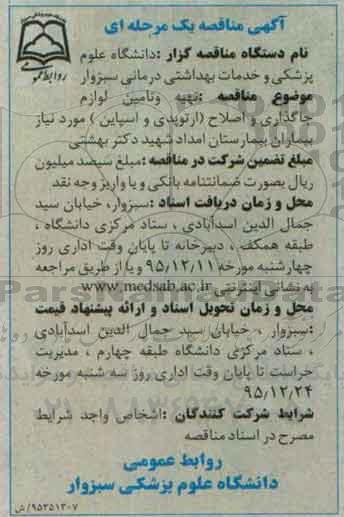 آگهی مناقصه یک مرحله ای
نام دستگاه مناقصه گزار :دانشگاه علوم
پزشکی و خدمات بهداشتی درمانی سبزوار
روابط عمومی
موضوع مناقصه :تهیه وتامین لوازم
جاگذاری و اصلاح (ارتوپدی و اسپاین ) مورد نیاز
بیماران بیمارستان امداد شهید دکتر بهشتی
مبلغ تضمین شرکت در مناقصه :مبلغ سیصد میلیون
ریال بصورت ضمانتنامه بانکی و یا واریز وجه نقد
محل و زمان دریافت اسناد :سبزوار، خیابان سید
جمال الدین اسدآبادی ، ستاد مرکزی دانشگاه ،
طبقه همکف ، دبیرخانه تا پایان وقت اداری روز
چهارشنبه مورخه ۹۵/۱۲/۱۱ و یا از طریق مراجعه
به نشانی اینترنتی www.medsab.ac.ir
محل و زمان تحویل اسناد و ارائه پیشنهاد قیمت
:سبزوار ، خیابان سید جمال الدین اسدآبادی
، ستاد مرکزی دانشگاه طبقه چهارم ، مدیریت
حراست تا پایان وقت اداری روز سه شنبه مورخه
۹۵/۱۲/۲۴
شرایط شرکت کنندگان :اشخاص واجد شرایط
مصرح در اسناد مناقصه
روابط عمومی
دانشگاه علوم پزشکی سبزوار
۹۵۲۵۱۳۰۷/ش